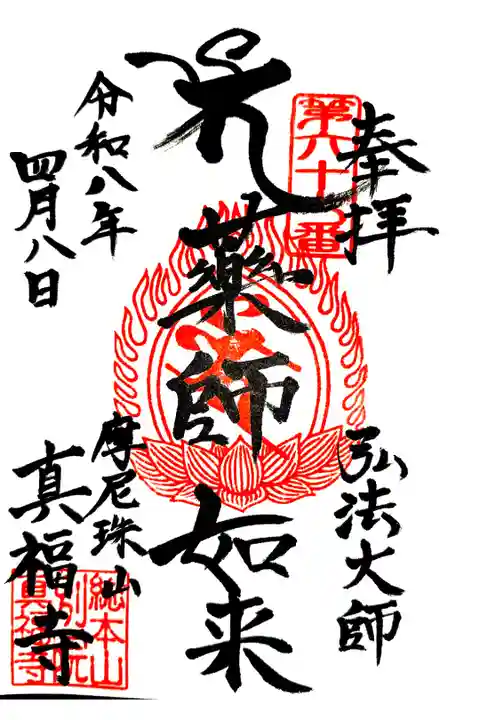 奉拝
弘法大師
第六十八番
薬師如来
令和八年
四月八日
摩尼珠山
真福寺
総本山
別院
真福寺